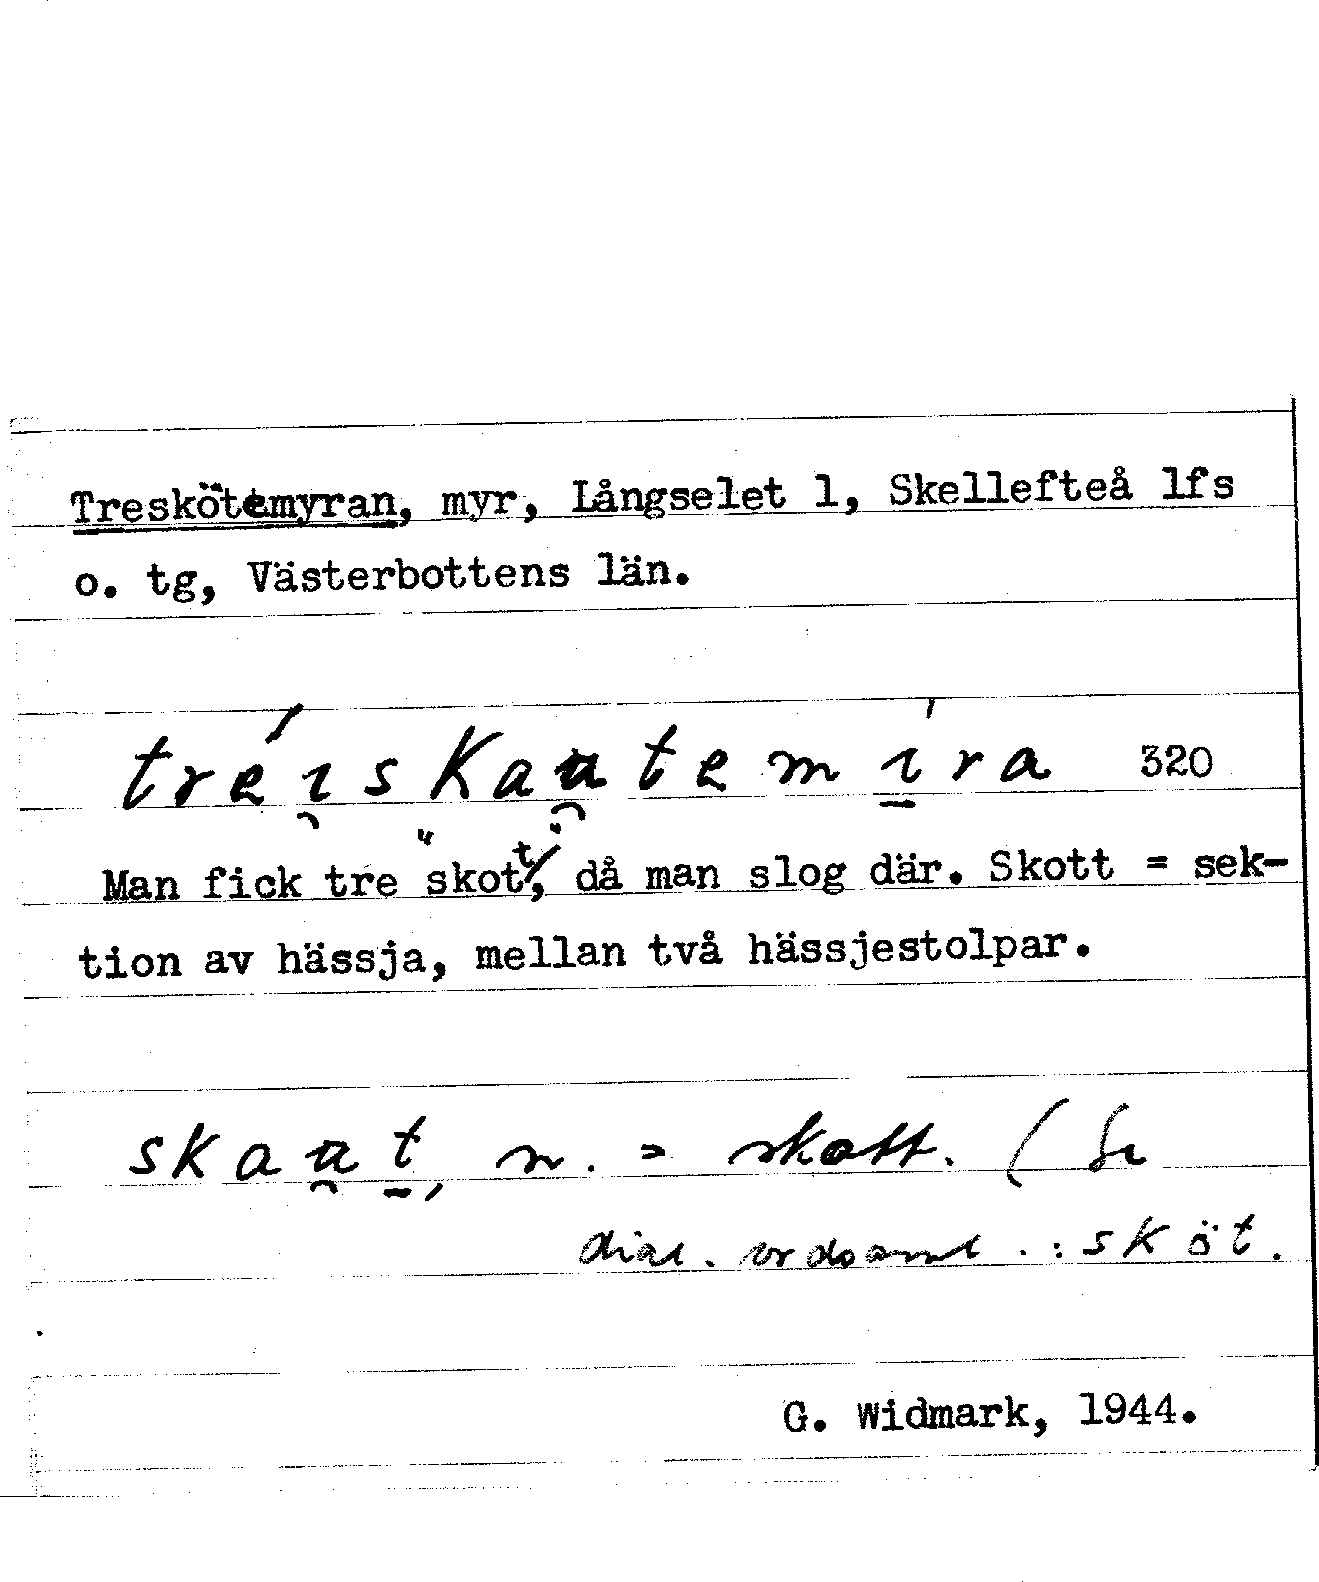 Treskötemyran, myr, Långselet 1, Skellefteå lfs
o. tg, Västerbottens län.
tréi̯skau̯temı̱́ra 320
Man fick tre "skott", då man slog där. Skott = sek-
tion av hässja, mellan två hässjestolpar.
skau̯t̠, n. = skott. (Se
dial. ordsaml.: sköt.
G. Widmark, 1944.